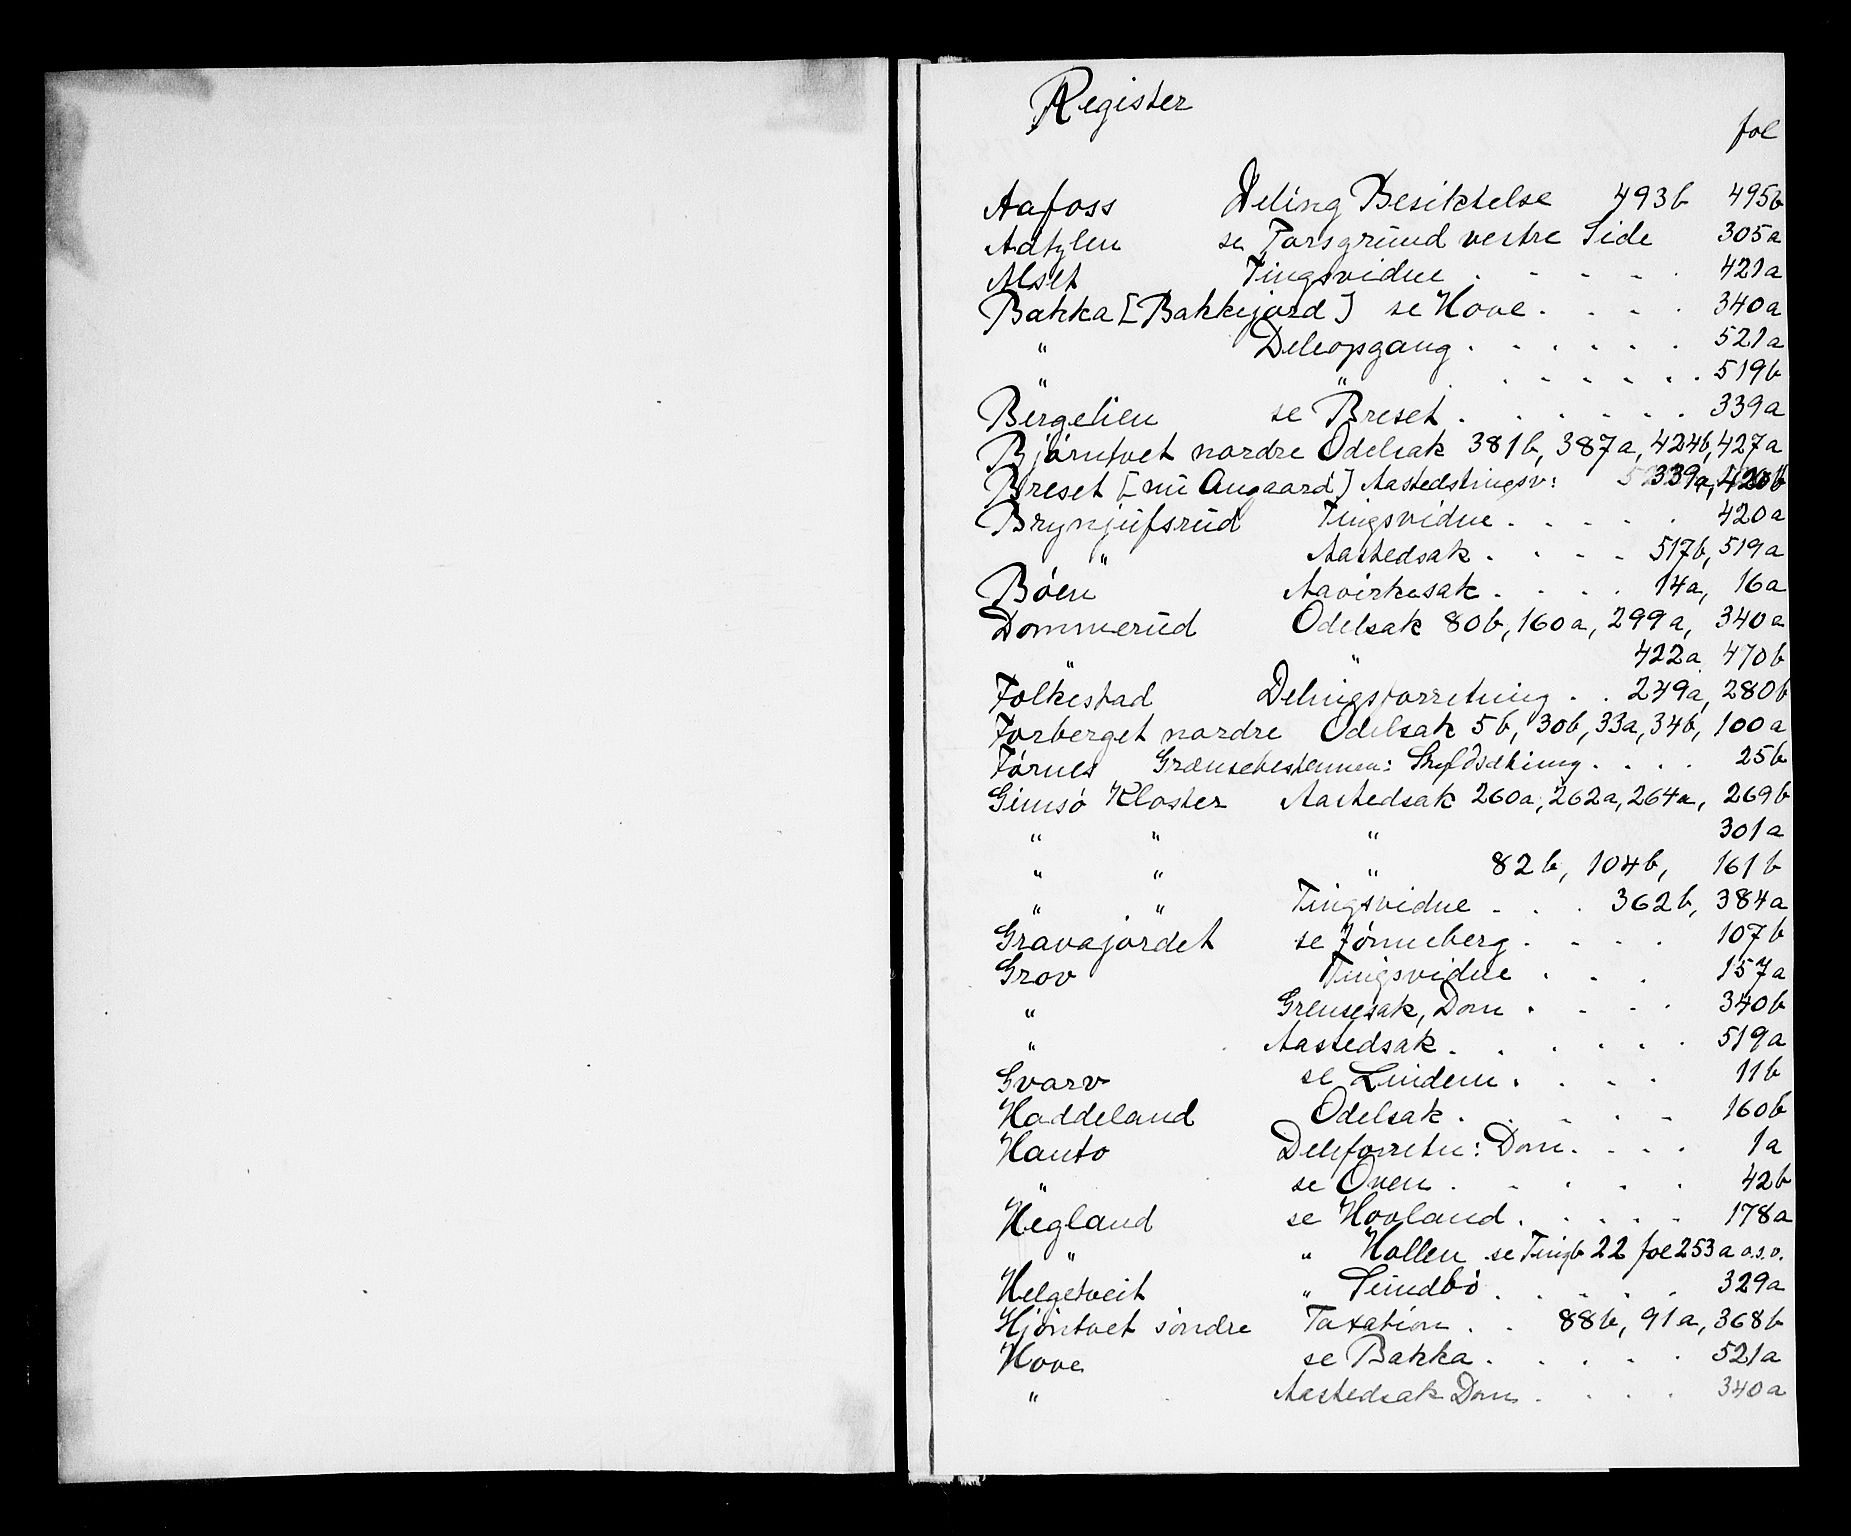 Register
fol
Aafoss Deling Besiktelse 493b 495b
Adtzlen se Torsgrund vestre Side 305a
Alset Tingsvidne . . . . . 421a
Bakka [Bakkejord] se Hove . . . . 340a
" Deleopgang . . . . . . 521a
" " . . . . . . . 519b
Bergelien se Breset . . . . . . 339a
Bjørntvet nordre Odelsak 381b, 387a, 424b, 427a
Breset [nu Aagaard] Aastedstingsv: 339a, 420b
Brynjufsrud Tingsvidne . . . . . 420a
" Aastedsak . . . . 517b, 519a
Bøen Aavirkesak . . . . 14a, 16a
Dommerud Odelsak 80b, 160a, 299a, 340a
" " 422a, 470b
Folkestad Delingsforretning . . 249a, 280b
Forberget nordre Odelsak 5b, 30b, 33a, 34b, 100a
Førnes Grænsebestemm: Skyldsætning . . . . 25b
Gimsø Kloster Aastedsak 260a, 262a, 264a, 269b
" " " 301a
" " " 82b, 104b, 161b
" " Tingsvidne . . . 362b, 384a
Gravajordet se Jønneberg . . . . 107b
Grov Tingsvidne . . . 157a
" Grensesak, Dom . . . . 340b
" Aastedsak . . . . . . 519a
Gvarv se Lindem . . . . 11b
Haddeland Odelsak . . . . . 160b
Hanto Deleforretn: Dom . . . . 1a
" se Oven . . . . . 42b
Hegland se Hovland . . . . . 178a
" " Hollen se Tingb 22 fol 253a o.s.v.
Helgetveit " Sundbø . . . . . 329a
Hjøntvet søndre Taxation . . 88b, 91a, 368b
Hove se Bakka . . . . . 521a
" Aastedsak Dom . . . . 340a